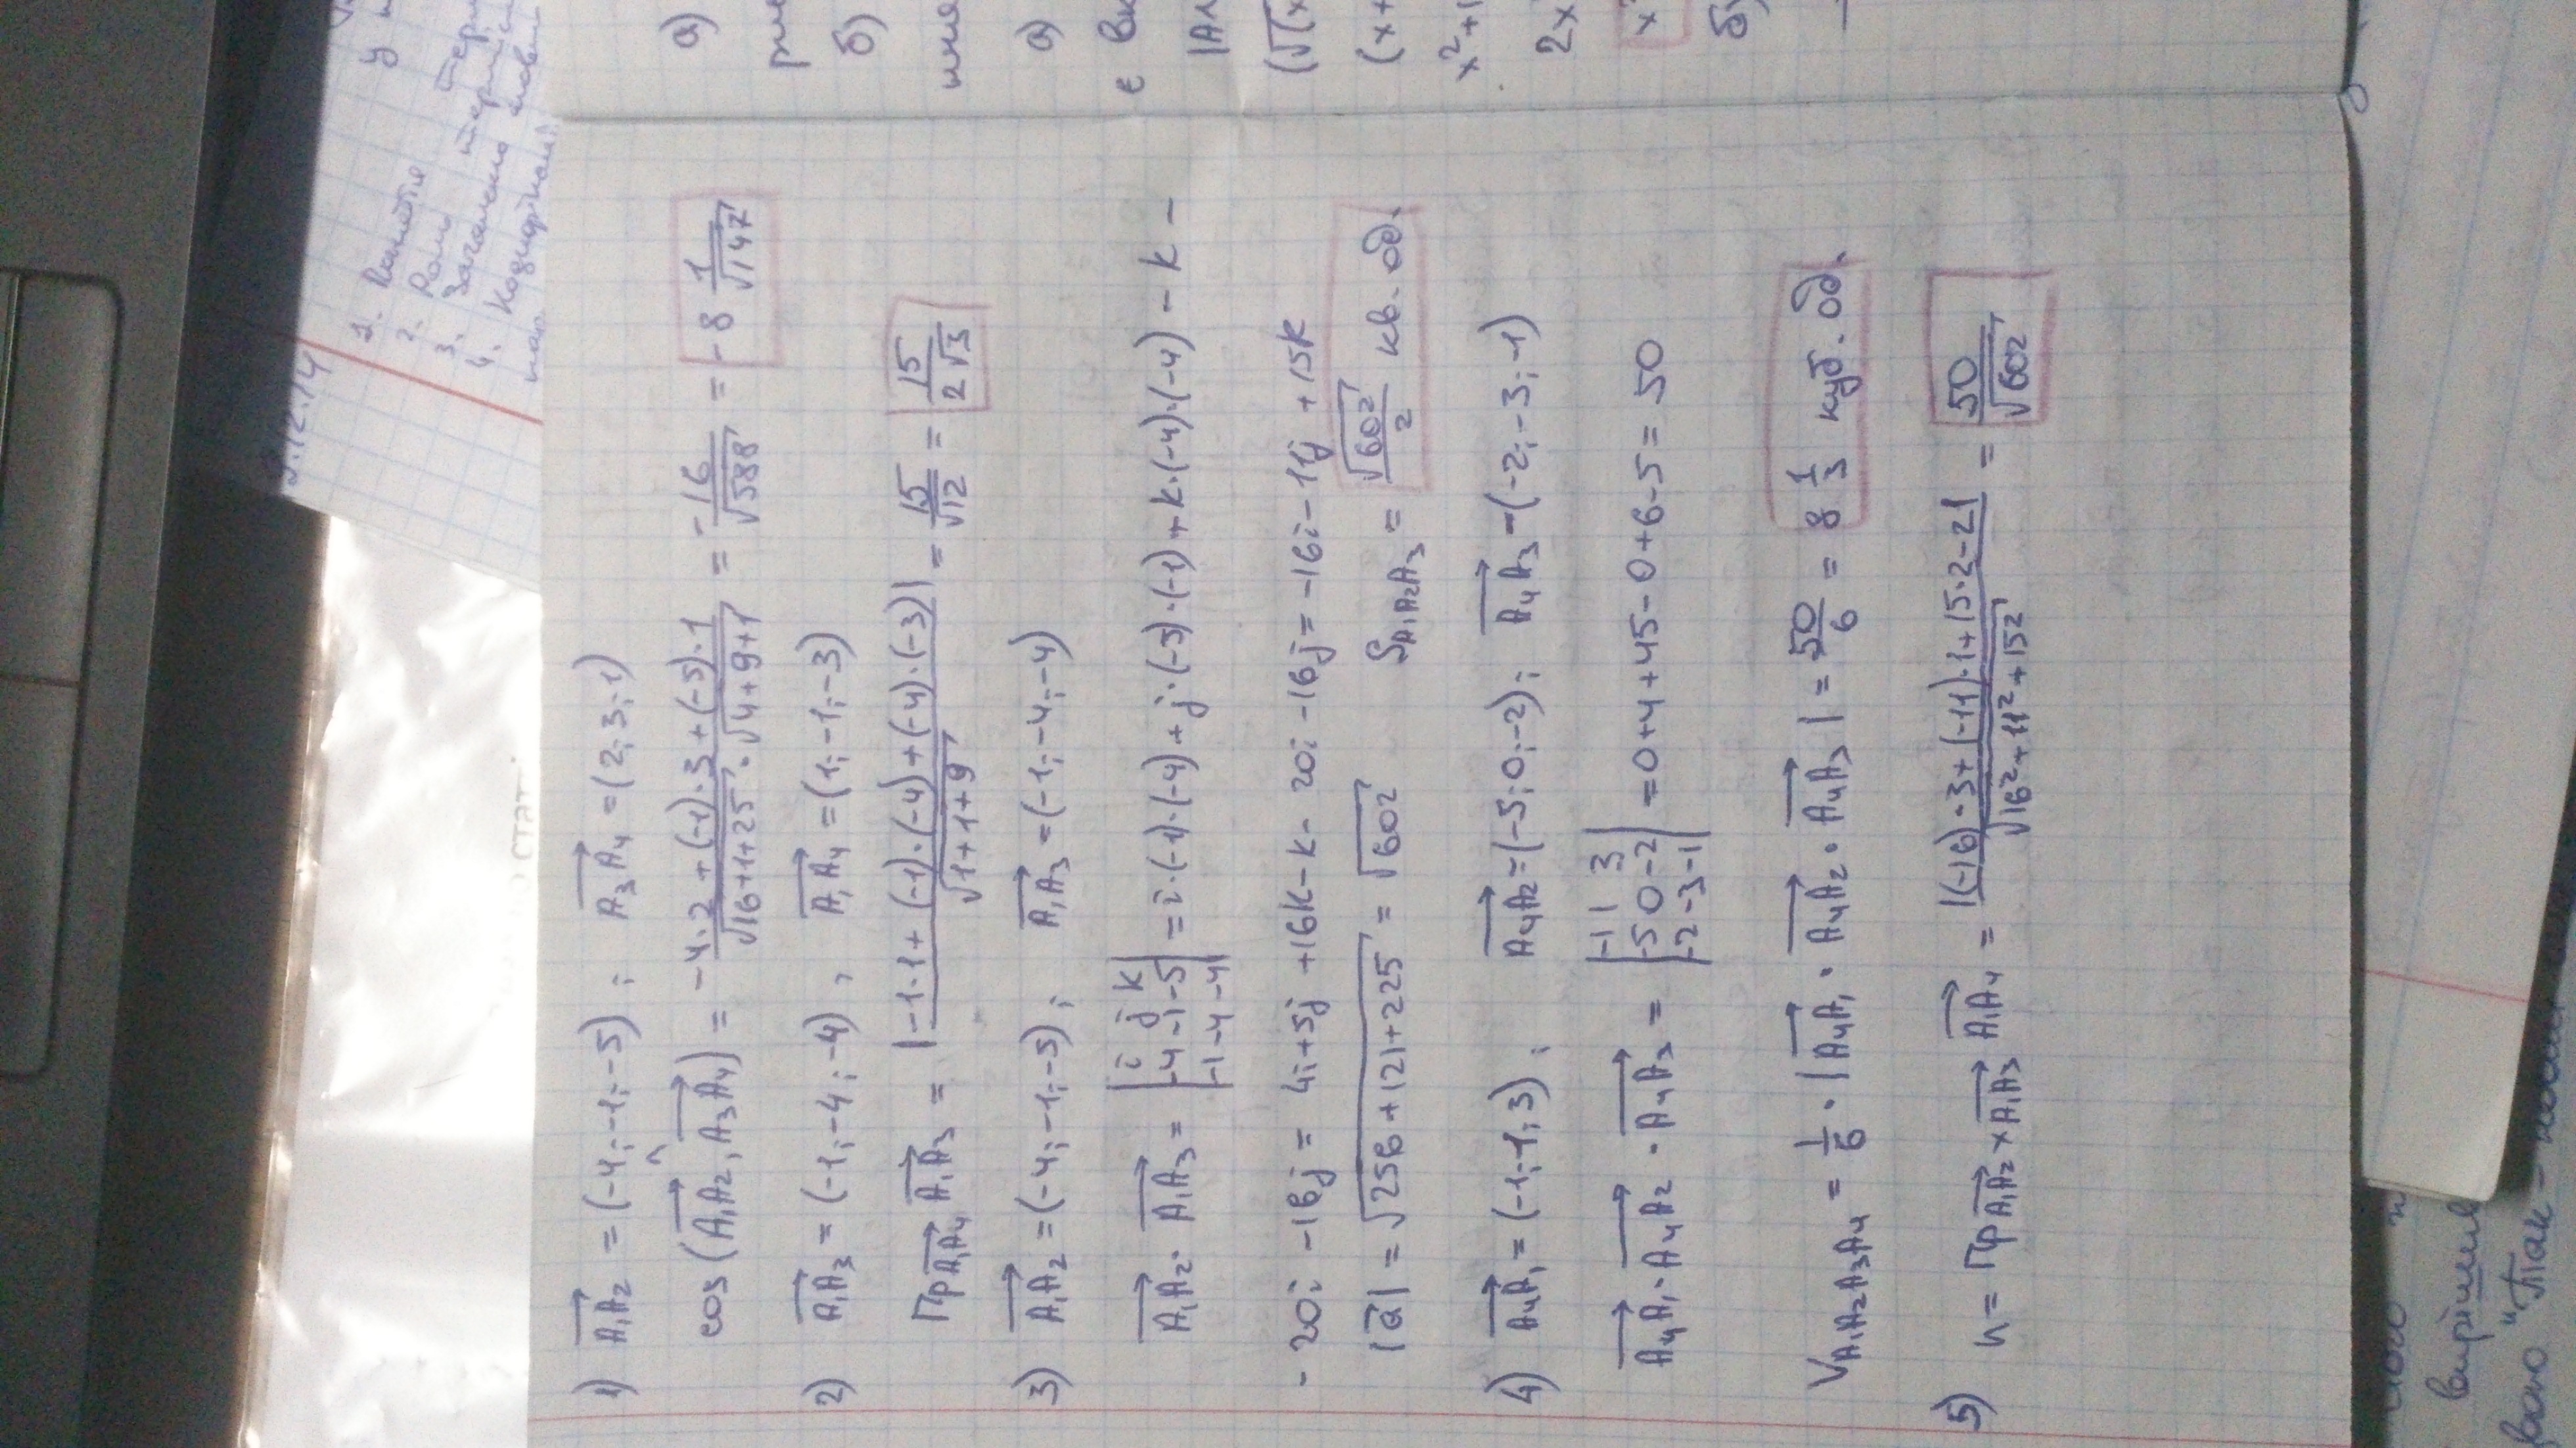 9.12.14
1. Поняття
2. Роль
3. Загальна
4.
стат
1) A₁A₂ = (-4; -1; -5) ; A₃A₄ = (2; 3; 1)
cos (A₁A₂, A₃A₄) = (-4·2 + (-1)·3 + (-5)·1) / (√16+1+25 · √4+9+1) = -16/√588 = -8 1/√147
2) A₁A₃ = (-1; -4; -4) , A₁A₄ = (1; -1; -3)
Пр A₁A₄ A₁A₃ = |-1·1 + (-1)·(-4) + (-4)·(-3)| / √1+1+9 = 15/√12 = 15/2√3
3) A₁A₂ = (-4; -1; -5) ; A₁A₃ = (-1; -4; -4)
A₁A₂ · A₁A₃ = |i j k| = i·(-1)·(-4) + j·(-5)·(-1) + k·(-4)·(-4) - k -
|-4 -1 -5|
|-1 -4 -4|
- 20i - 16j = 4i + 5j + 16k - k - 20i - 16j = -16i - 11j + 15k
|a| = √256 + 121 + 225 = √602 S A₁A₂A₃ = √602/2 кв. од.
4) A₄A₁ = (-1; 1; 3) ; A₄A₂ = (-5; 0; -2) ; A₄A₃ = (-2; -3; -1)
A₄A₁ · A₄A₂ · A₄A₃ = |-1 1 3| = 0+4+45-0+6-5 = 50
|-5 0 -2|
|-2 -3 -1|
V A₁A₂A₃A₄ = 1/6 · |A₄A₁ · A₄A₂ · A₄A₃| = 50/6 = 8 1/3 куб. од.
5) h = Пр A₁A₂×A₁A₃ A₁A₄ = |(-16)·3 + (-11)·1 + 15·2 - 21| / √16² + 11² + 15² = 50/√602
а)
б)
а)
є
2x
"Так -